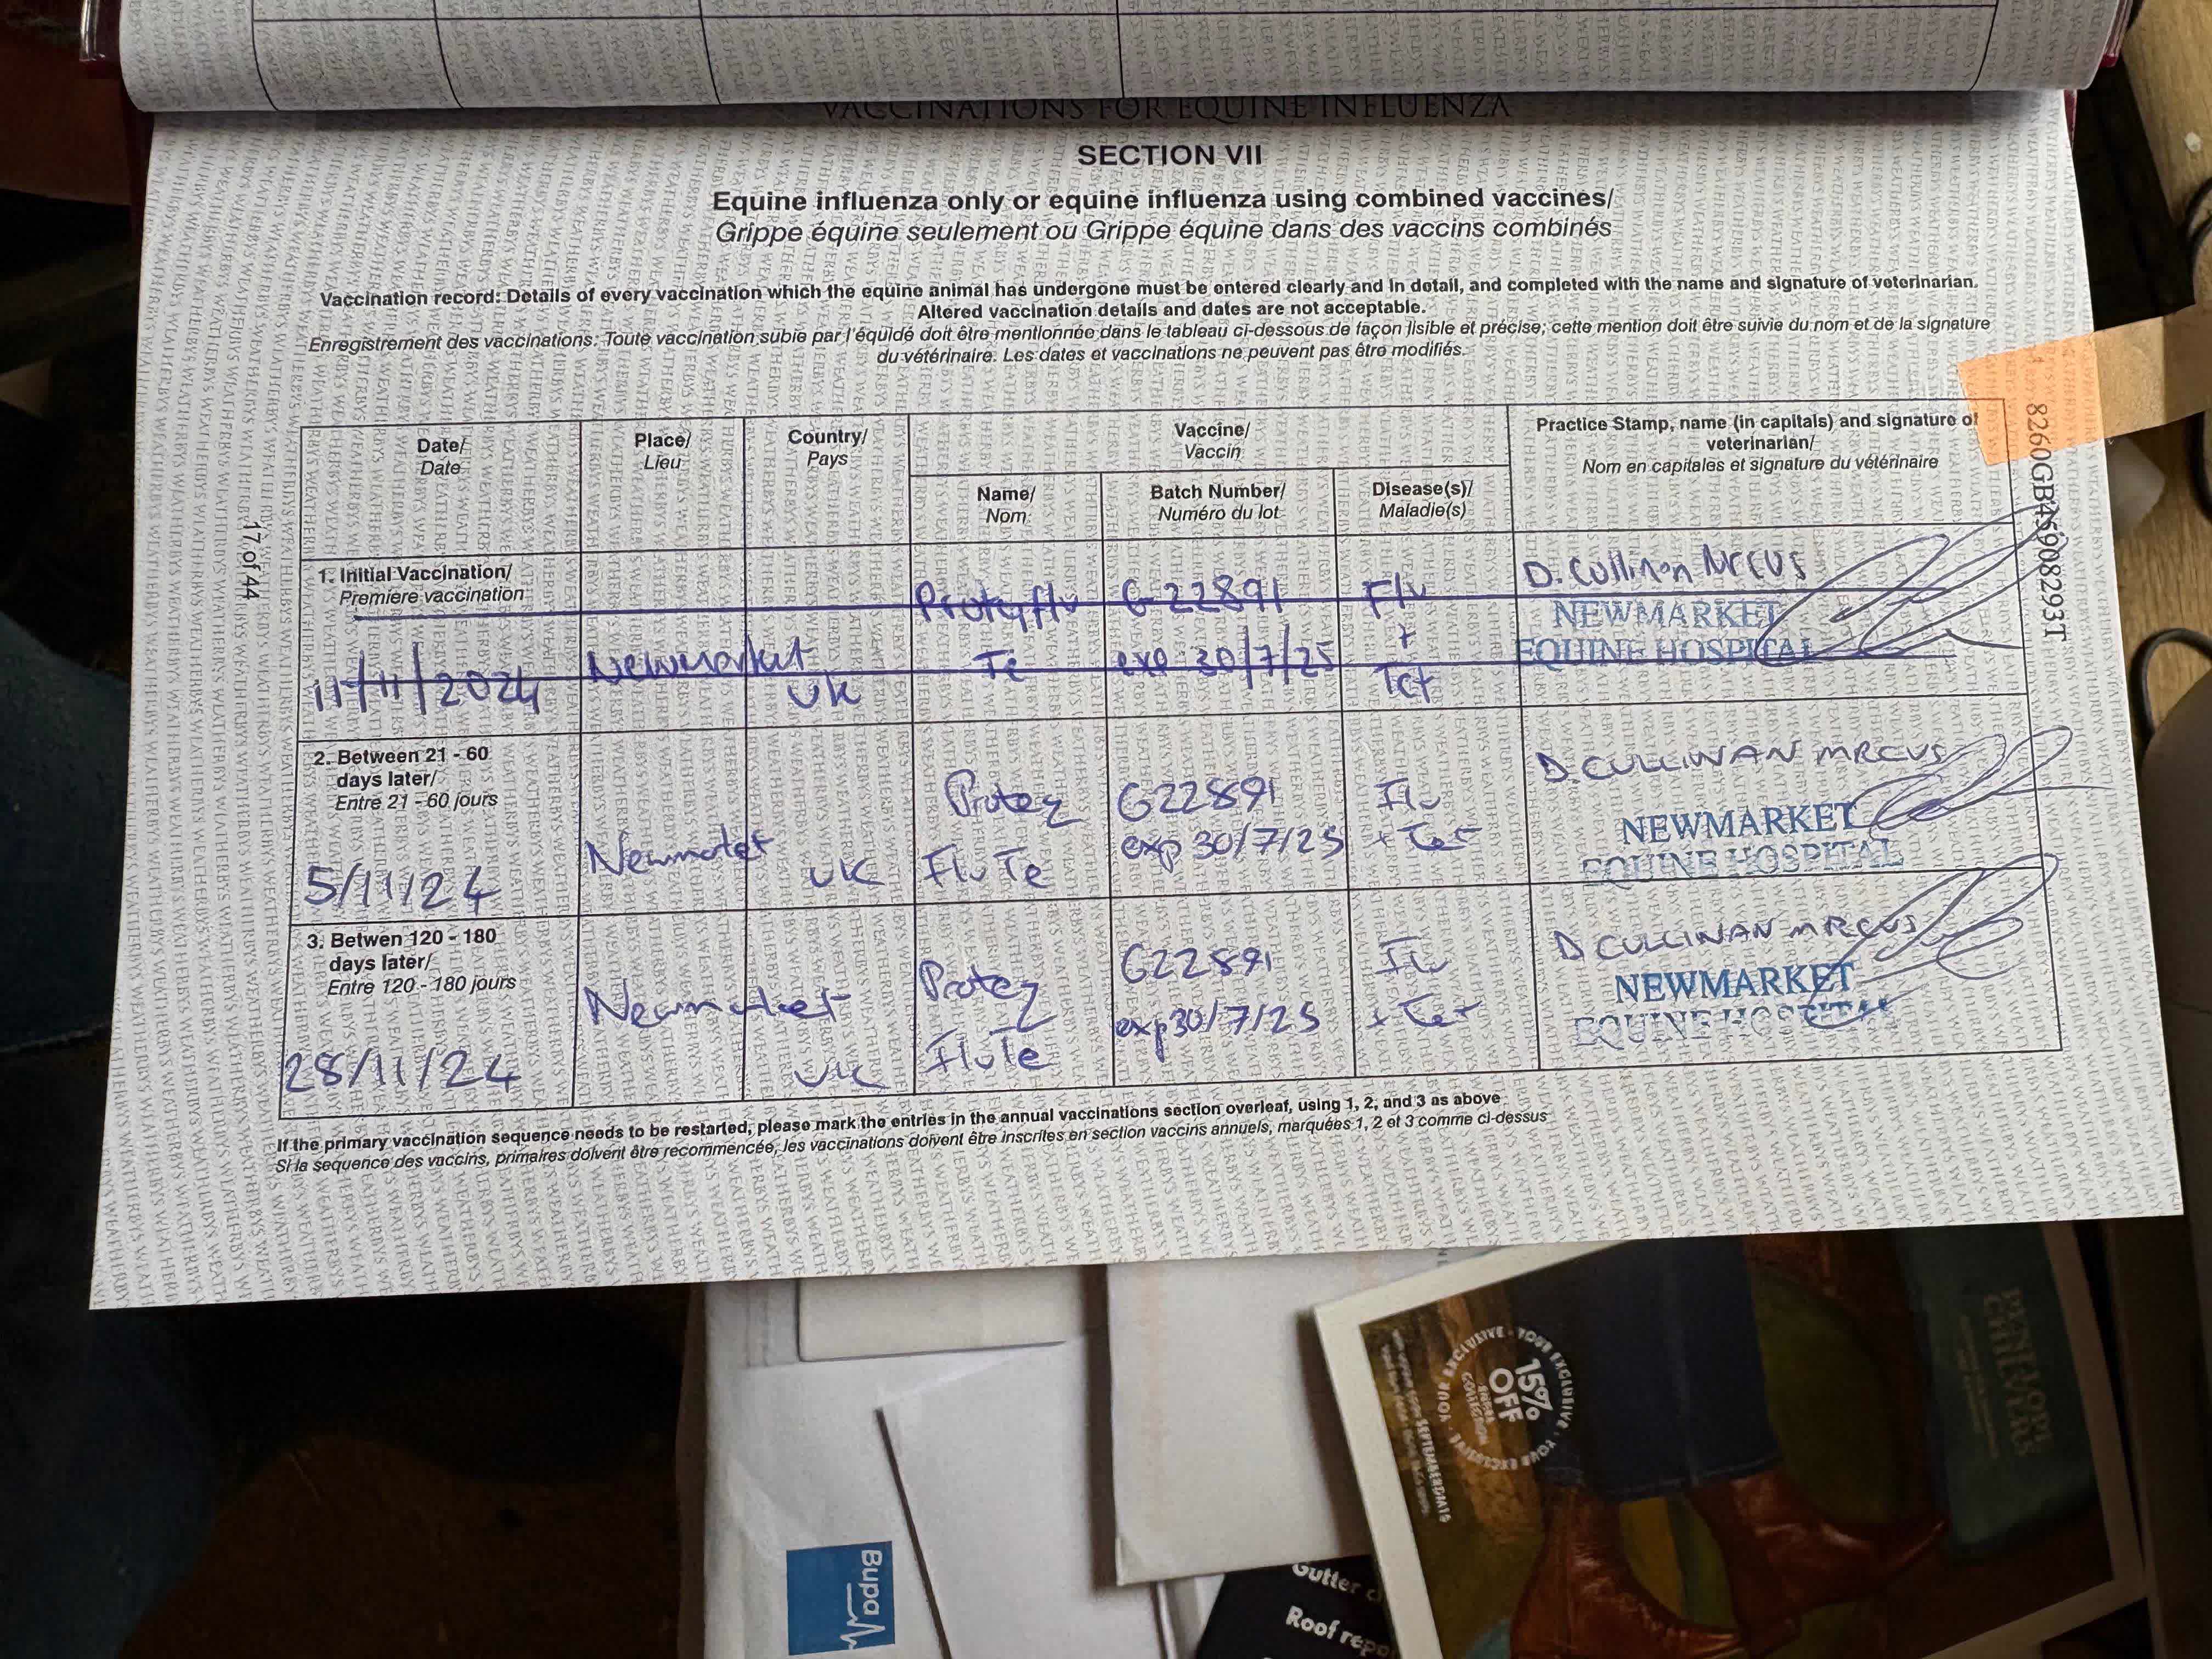 VACCINATIONS FOR EQUINE INFLUENZA
SECTION VII
Equine influenza only or equine influenza using combined vaccines/
Grippe équine seulement ou Grippe équine dans des vaccins combinés
Vaccination record: Details of every vaccination which the equine animal has undergone must be entered clearly and in detail, and completed with the name and signature of veterinarian.
Altered vaccination details and dates are not acceptable.
Enregistrement des vaccinations: Toute vaccination subie par l'équidé doit être mentionnée dans le tableau ci-dessous de façon lisible et précise; cette mention doit être suivie du nom et de la signature
du vétérinaire. Les dates et vaccinations ne peuvent pas être modifiés.
Date/
Date
Place/
Lieu
Country/
Pays
Vaccine/
Vaccin
Name/
Nom
Batch Number/
Numéro du lot
Disease(s)/
Maladie(s)
Practice Stamp, name (in capitals) and signature of
veterinarian/
Nom en capitales et signature du vétérinaire
1. Initial Vaccination/
Premiere vaccination
11/11/2024
Newmarket
UK
Proteqflu
Te
G22891
exp 30/7/25
Flu
+
Tet
D. Cullinan MRCVS
NEWMARKET
EQUINE HOSPITAL
2. Between 21 - 60
days later/
Entre 21 - 60 jours
5/11/24
Newmarket
UK
Proteq
Flu Te
G22891
exp 30/7/25
Flu
+ Tet
D. CULLINAN MRCVS
NEWMARKET
EQUINE HOSPITAL
3. Betwen 120 - 180
days later/
Entre 120 - 180 jours
28/11/24
Newmarket
UK
Proteq
FluTe
G22891
exp 30/7/25
Flu
+ Tet
D CULLINAN MRCVS
NEWMARKET
EQUINE HOSPITAL
If the primary vaccination sequence needs to be restarted, please mark the entries in the annual vaccinations section overleaf, using 1, 2, and 3 as above
Si la sequence des vaccins, primaires doivent être recommencée, les vaccinations doivent être inscrites en section vaccins annuels, marquées 1, 2 et 3 comme ci-dessus
17 of 44
8260GB45908293T
WEATHERBYS
Bupa
YOUR EXCLUSIVE
15%
OFF
PENELOPE
CHILVERS
Gutter
Roof repo